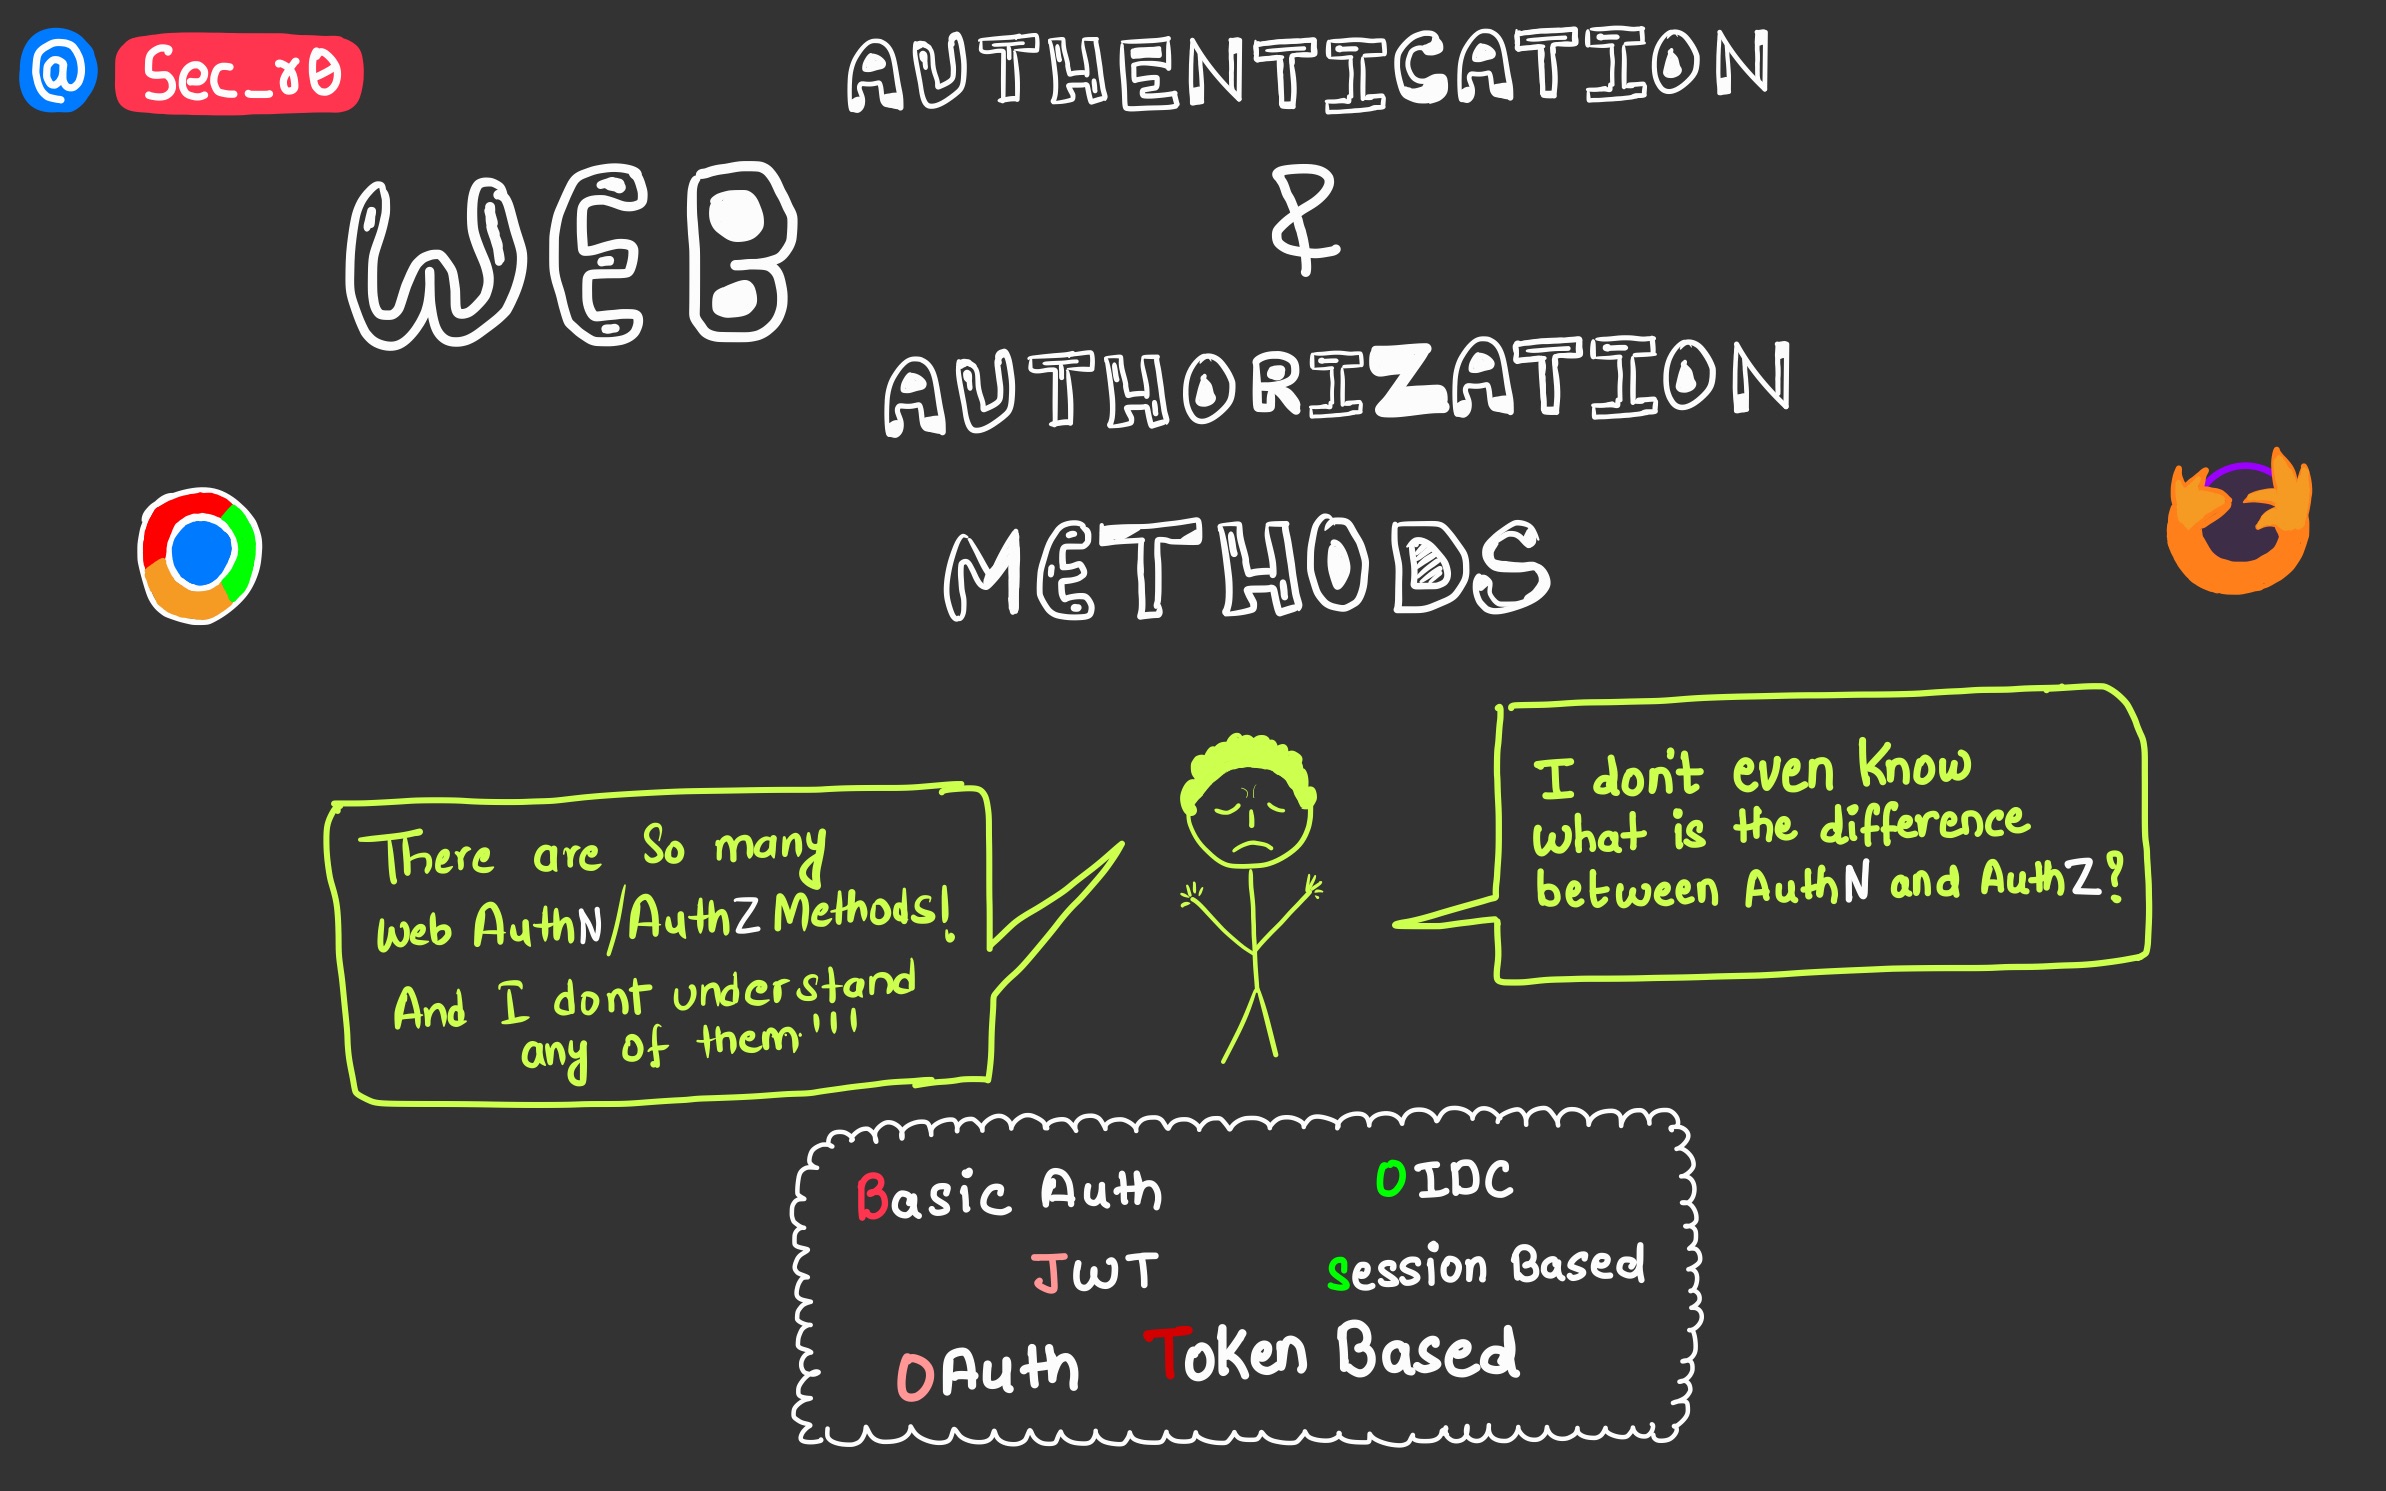 @ Sec_r0
AUTHENTICATION
WEB &
AUTHORIZATION
METHODS
There are so many
web AuthN/AuthZ Methods!
And I dont understand
any of them.'''
I don't even know
what is the difference
between AuthN and AuthZ?
Basic Auth OIDC
JWT Session Based
OAuth Token Based